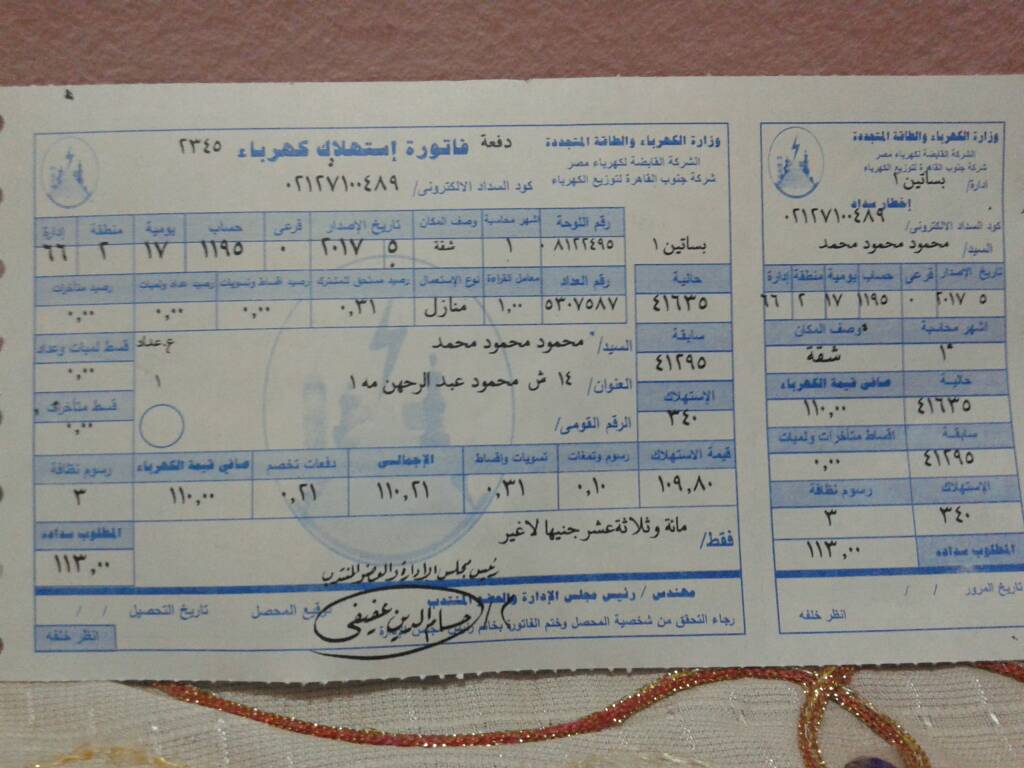 وزارة الكهرباء والطاقة المتجددة
الشركة القابضة لكهرباء مصر
شركة جنوب القاهرة لتوزيع الكهرباء
دفعة فاتورة إستهلاك كهرباء ٢٣٤٥
كود السداد الالكترونى/ ٠٢١٢٧١٠٠٤٨٩
بساتين ١
رقم اللوحة أشهر محاسبة وصف المكان تاريخ الإصدار فرعى حساب يومية منطقة إدارة
٠٨١٢٢٤٩٥ ١ شقة ٥ ٢٠١٧ ٠ ١١٩٥ ١٧ ٢ ٦٦
حالية رقم العداد معامل القراءة نوع الإستعمال رصيد مستحق للمشترك رصيد اقساط وتسويات رصيد عداد ولمبات رصيد متأخرات
٤١٦٣٥ ٥٣٠٧٥٨٧ ١,٠٠ منازل ٠,٣١ ٠,٠٠ ٠,٠٠ ٠,٠٠
سابقة
٤١٢٩٥
السيد/ محمود محمود محمد
ع.عداد
١
قسط لمبات وعداد
٠,٠٠
العنوان/ ١٤ ش محمود عبد الرحهن مه ١
الإستهلاك
٣٤٠
قسط متأخرات
٠,٠٠
الرقم القومى/
قيمة الاستهلاك رسوم وتمغات تسويات واقساط الإجمالى دفعات تخصم صافي قيمة الكهرباء رسوم نظافة
١٠٩,٨٠ ٠,١٠ ٠,٣١ ١١٠,٢١ ٠,٢١ ١١٠,٠٠ ٣
فقط/ مائة وثلاثة عشر جنيها لا غير
المطلوب سداده
١١٣,٠٠
رئيس مجلس الإدارة والعضو المنتدب
مهندس / رئيس مجلس الإدارة والعضو المنتدب
حسام الدين عفيفى
توقيع المحصل تاريخ التحصيل / /
رجاء التحقق من شخصية المحصل وختم الفاتورة بخاتم
انظر خلفه
وزارة الكهرباء والطاقة المتجددة
الشركة القابضة لكهرباء مصر
شركة جنوب القاهرة لتوزيع الكهرباء
ادارة/ بساتين ٢
إخطار سداد
كود السداد الالكترونى/ ٠٢١٢٧١٠٠٤٨٩
السيد/ محمود محمود محمد
تاريخ الاصدار فرعى حساب يومية منطقة إدارة
٥ ٢٠١٧ ٠ ١١٩٥ ١٧ ٢ ٦٦
اشهر محاسبة وصف المكان
١ شقة
حالية صافى قيمة الكهرباء
٤١٦٣٥ ١١٠,٠٠
سابقة اقساط متأخرات ولمبات
٤١٢٩٥ ٠,٠٠
الإستهلاك رسوم نظافة
٣٤٠ ٣
المطلوب سداده ١١٣,٠٠
تاريخ المرور / /
انظر خلفه